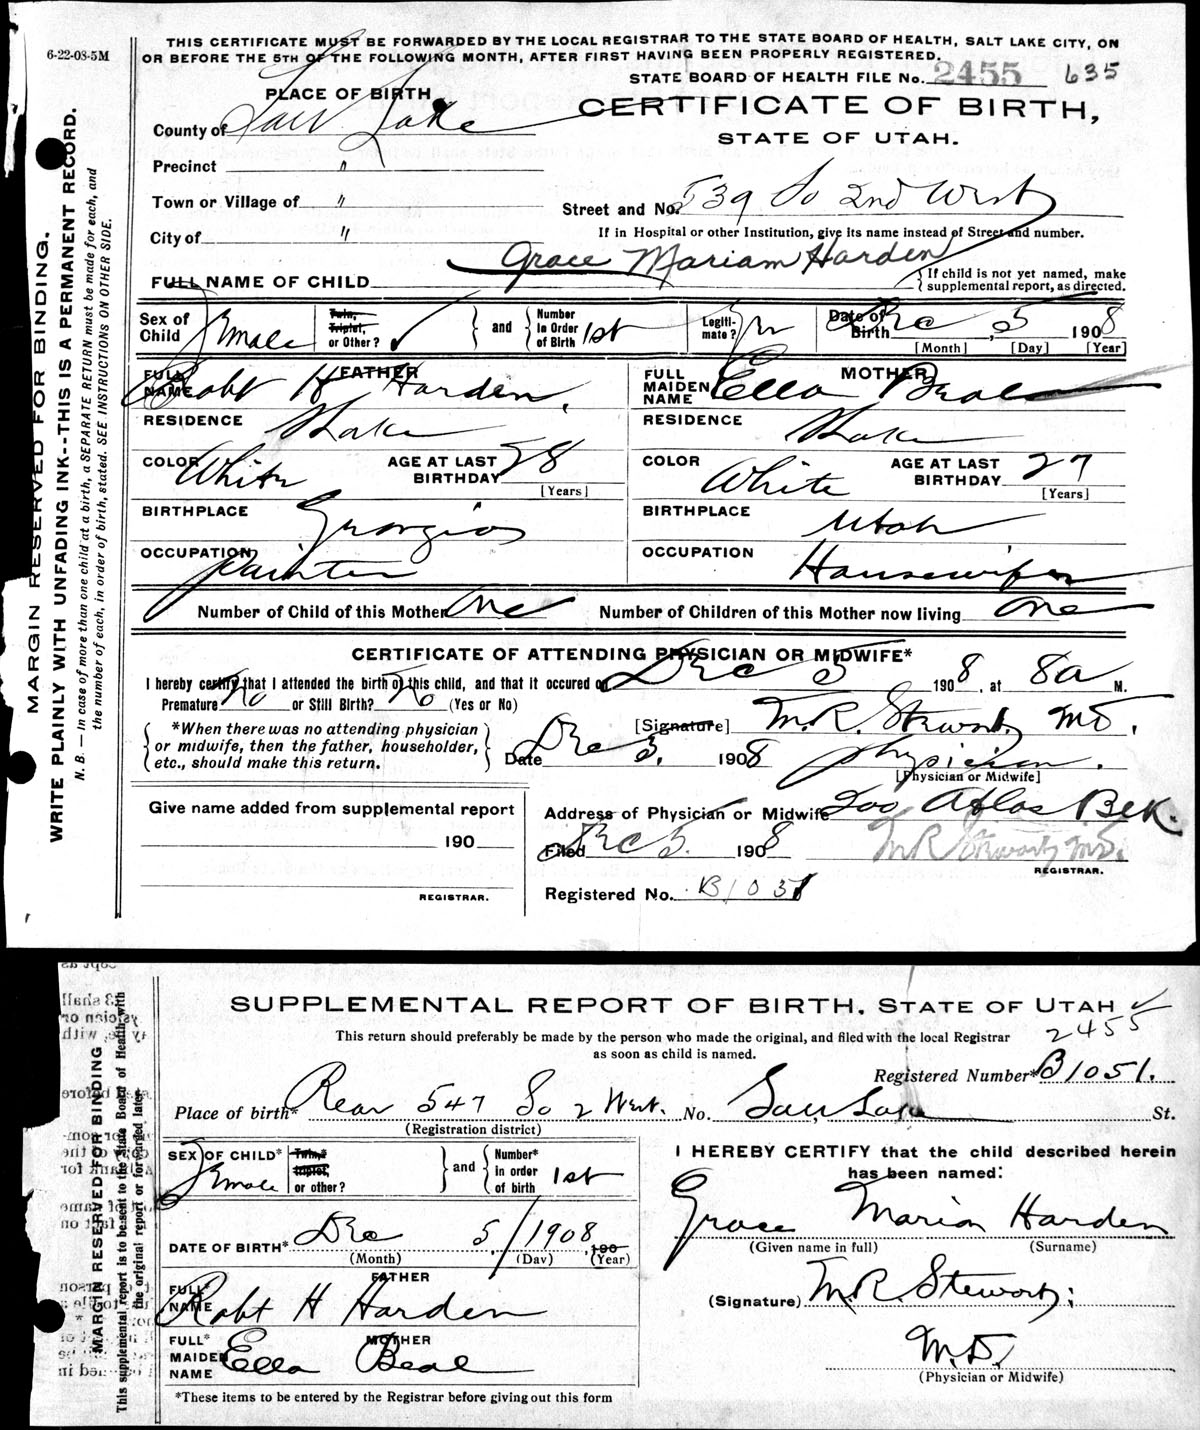 6-22-08-5M
THIS CERTIFICATE MUST BE FORWARDED BY THE LOCAL REGISTRAR TO THE STATE BOARD OF HEALTH, SALT LAKE CITY, ON
OR BEFORE THE 5TH OF THE FOLLOWING MONTH, AFTER FIRST HAVING BEEN PROPERLY REGISTERED.
STATE BOARD OF HEALTH FILE No. 2455 635
PLACE OF BIRTH
CERTIFICATE OF BIRTH,
STATE OF UTAH.
County of Salt Lake
Precinct "
Town or Village of "
Street and No. 539 So 2nd West
City of "
If in Hospital or other Institution, give its name instead of Street and number.
FULL NAME OF CHILD Grace Mariam Harden
If child is not yet named, make
supplemental report, as directed.
Sex of Child Female
Twin, Triplet, or Other?
and
Number in Order of Birth 1st
Legitimate?
Date of Birth Dec 5 1908
[Month] [Day] [Year]
FATHER
FULL NAME Robt H Harden.
MOTHER
FULL MAIDEN NAME Ella Beal
RESIDENCE S Lake
RESIDENCE S Lake
COLOR White AGE AT LAST BIRTHDAY 28 [Years]
COLOR White AGE AT LAST BIRTHDAY 27 [Years]
BIRTHPLACE Georgia
BIRTHPLACE Utah
OCCUPATION Painter
OCCUPATION Housewife
Number of Child of this Mother One Number of Children of this Mother now living One
CERTIFICATE OF ATTENDING PHYSICIAN OR MIDWIFE*
I hereby certify that I attended the birth of this child, and that it occured on Dec 5 1908, at 8a M.
Premature No or Still Birth? No (Yes or No)
[Signature] M.R. Stewart, MD.
*When there was no attending physician
or midwife, then the father, householder,
etc., should make this return.
Date Dec 5, 1908 physician.
[Physician or Midwife]
Give name added from supplemental report
190
REGISTRAR.
Address of Physician or Midwife 200 Atlas Blk.
Filed Dec 5. 1908 M R Stewart MD.
REGISTRAR.
Registered No. B1051
MARGIN RESERVED FOR BINDING.
WRITE PLAINLY WITH UNFADING INK--THIS IS A PERMANENT RECORD.
N. B. — In case of more than one child at a birth, a SEPARATE RETURN must be made for each, and
the number of each, in order of birth, stated. SEE INSTRUCTIONS ON OTHER SIDE.
SUPPLEMENTAL REPORT OF BIRTH. STATE OF UTAH
2455
This return should preferably be made by the person who made the original, and filed with the local Registrar
as soon as child is named.
Registered Number* B1051.
Place of birth* Rear 547 So 2 West. No. Salt Lake St.
(Registration district)
SEX OF CHILD* Female
Twin,* triplet, or other?
and
Number* in order of birth 1st
I HEREBY CERTIFY that the child described herein
has been named:
Grace Marion Harden
(Given name in full) (Surname)
DATE OF BIRTH* Dec 5, 1908 190
(Month) (Day) (Year)
FATHER
FULL* NAME Robt H Harden
(Signature) M.R. Stewart;
MOTHER
FULL* MAIDEN NAME Ella Beal
M.D.
(Physician or Midwife)
*These items to be entered by the Registrar before giving out this form
MARGIN RESERVED FOR BINDING
This supplemental report is to be sent to the State Board of Health with
the original report or forwarded later.